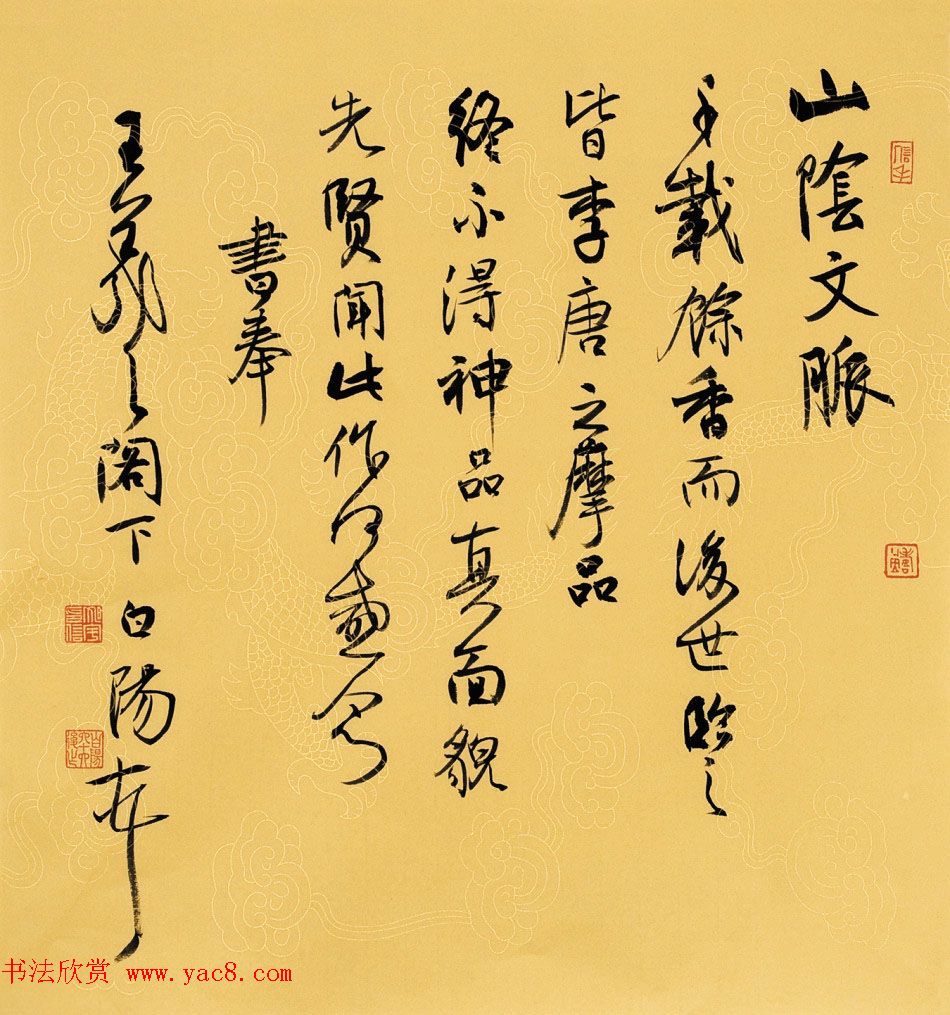 山陰文脈
千載餘香而後世臨之
皆李唐之摩品
終不得神品真面貌
先賢聞此作何感
書奉
王羲之閣下 白陽
书法欣赏 www.yac8.com